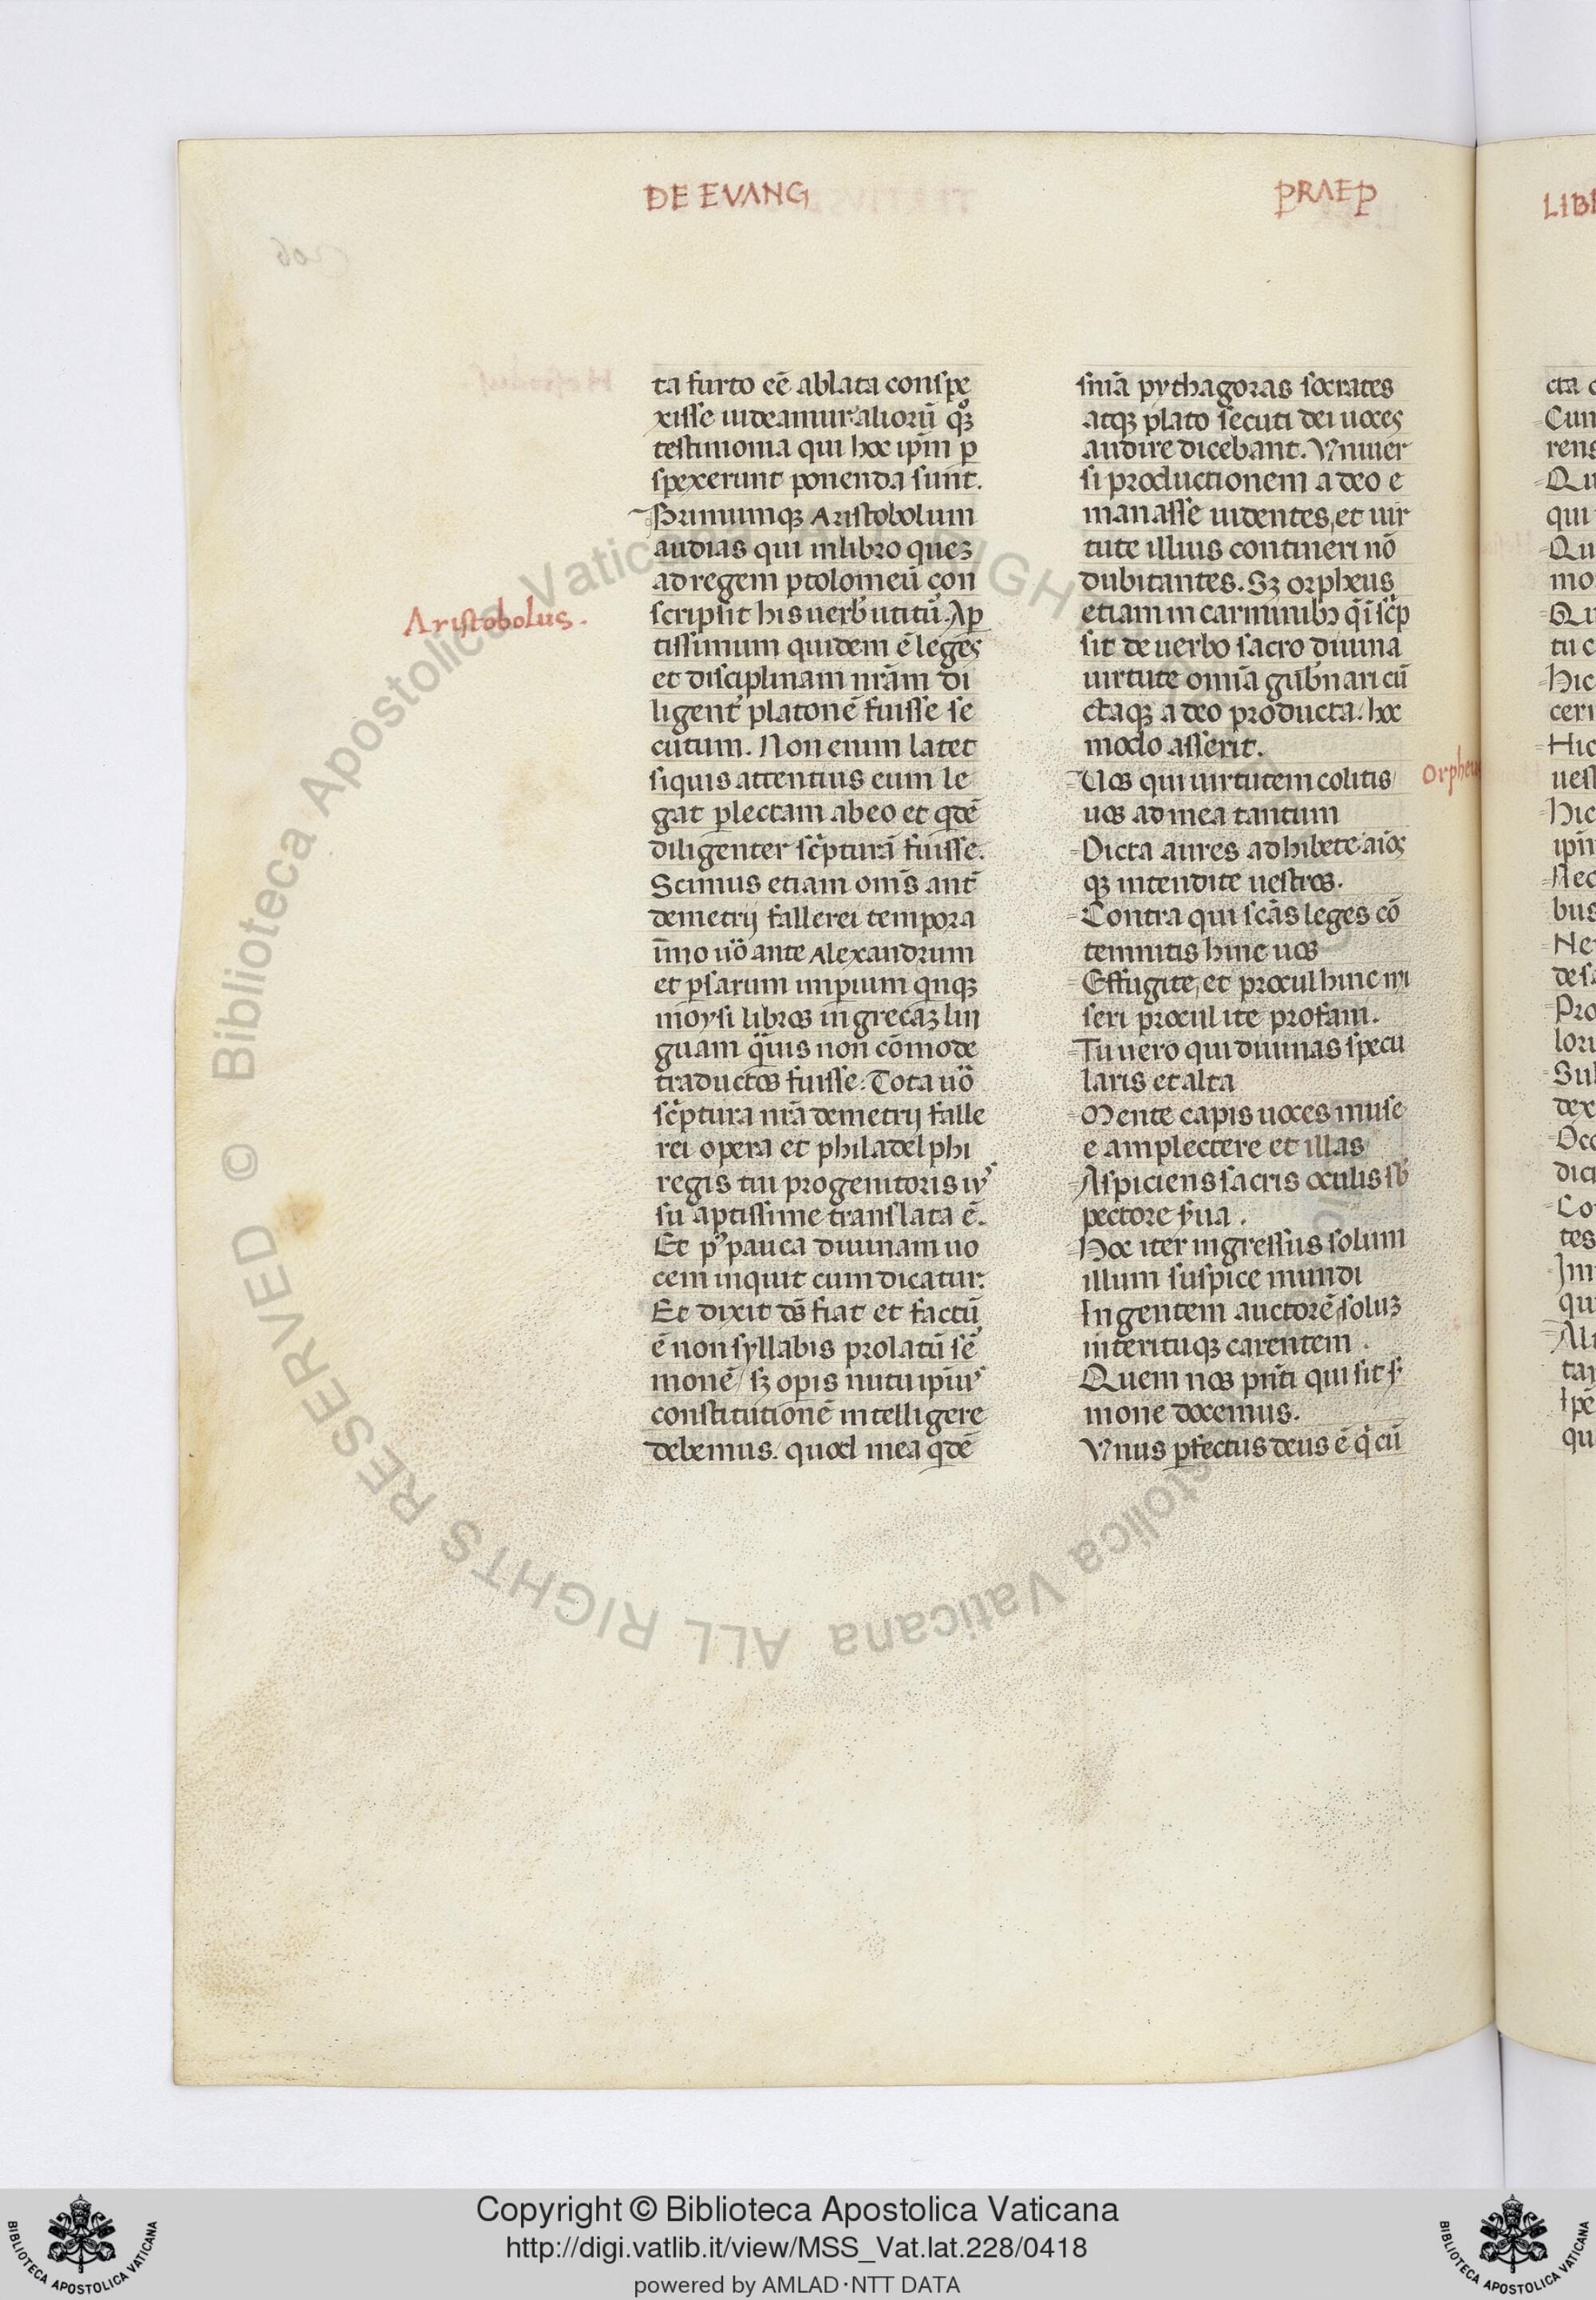 DE EVANG
PRAEP
ta furto eē ablata conspe
xisse uideamur: aliorū qꝫ
testimonia qui hoc ip̄m ꝑ
spexerunt ponenda sunt.
Primumqꝫ Aristobolum
audias qui in libro queꝫ
ad regem ptolomeū con
Aristobolus.
scripsit his uerb utitū. Aꝑ
tissimum quidem ē leges
et disciplinam nr̄am di
ligent platonē fuisse se
cutum. Non enim latet
siquis attentius eum le
gat ꝑlectam ab eo et qdē
diligenter sc̄pturā fuisse.
Scimus etiam om̄s ant̄
demetrij fallerei tempora
īmo uo ante Alexandrum
et ꝑsarum imꝑium qnqꝫ
moysi libros in grecaꝫ lin
guam quis non cōmode
traductos fuisse. Tota uo
sc̄ptura nr̄a demetrij falle
rei opera et philadelphi
regis tui progenitoris iv
su aptissime translata ē.
Et pꝰ pauca diuinam uo
cem inquit cum dicatur.
Et dixit ds̄ fiat et factū
ē non syllabis prolatū sē
monē / sꝫ oꝑis nutu ipiuꝰ
constitutionē intelligere
debemus. quod mea qdē
sniā pythagoras socrates
atqꝫ plato secuti dei uoces
audire dicebant. Vniuer
si productionem a deo e
manasse uidentes, et uir
tute illius contineri nō
dubitantes. Sꝫ orpheus
etiam in carminibꝫ q̄ īsc̄p
sit de uerbo sacro diuina
uirtute omīa gub̄nari cū
ctaqꝫ a deo producta. hoc
modo asserit.
Uos qui uirtutem colitis
Orpheus
uos ad mea tantum
Dicta aures adhibete aīos
qꝫ intendite uestros.
Contra qui scās leges cō
temnitis hinc uos
Effugite, et procul hinc mi
seri procul ite profani.
Tu uero qui diuinas specu
laris et alta
Mente capis uoces muse
e amplectere et illas
Aspiciens sacris oculis sb
pectore sua.
Hoc iter ingressus solum
illum suspice mundi
Ingentem auctorē, soluꝫ
interituqꝫ carentem.
Quem nos pn̄ti qui sit s
mone docemus.
Vnus ꝑfectus deus ē q cū
Copyright © Biblioteca Apostolica Vaticana
http://digi.vatlib.it/view/MSS_Vat.lat.228/0418
powered by AMLAD·NTT DATA